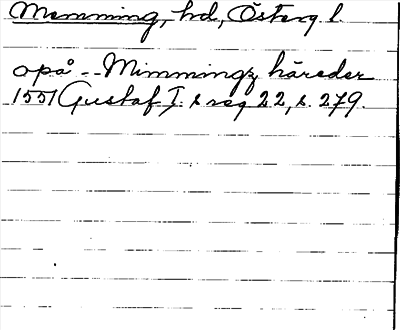 Memming, hd, Österg. l.
opå - - Mimmingz häreder
1551 Gustaf I:s reg 22, s. 279.